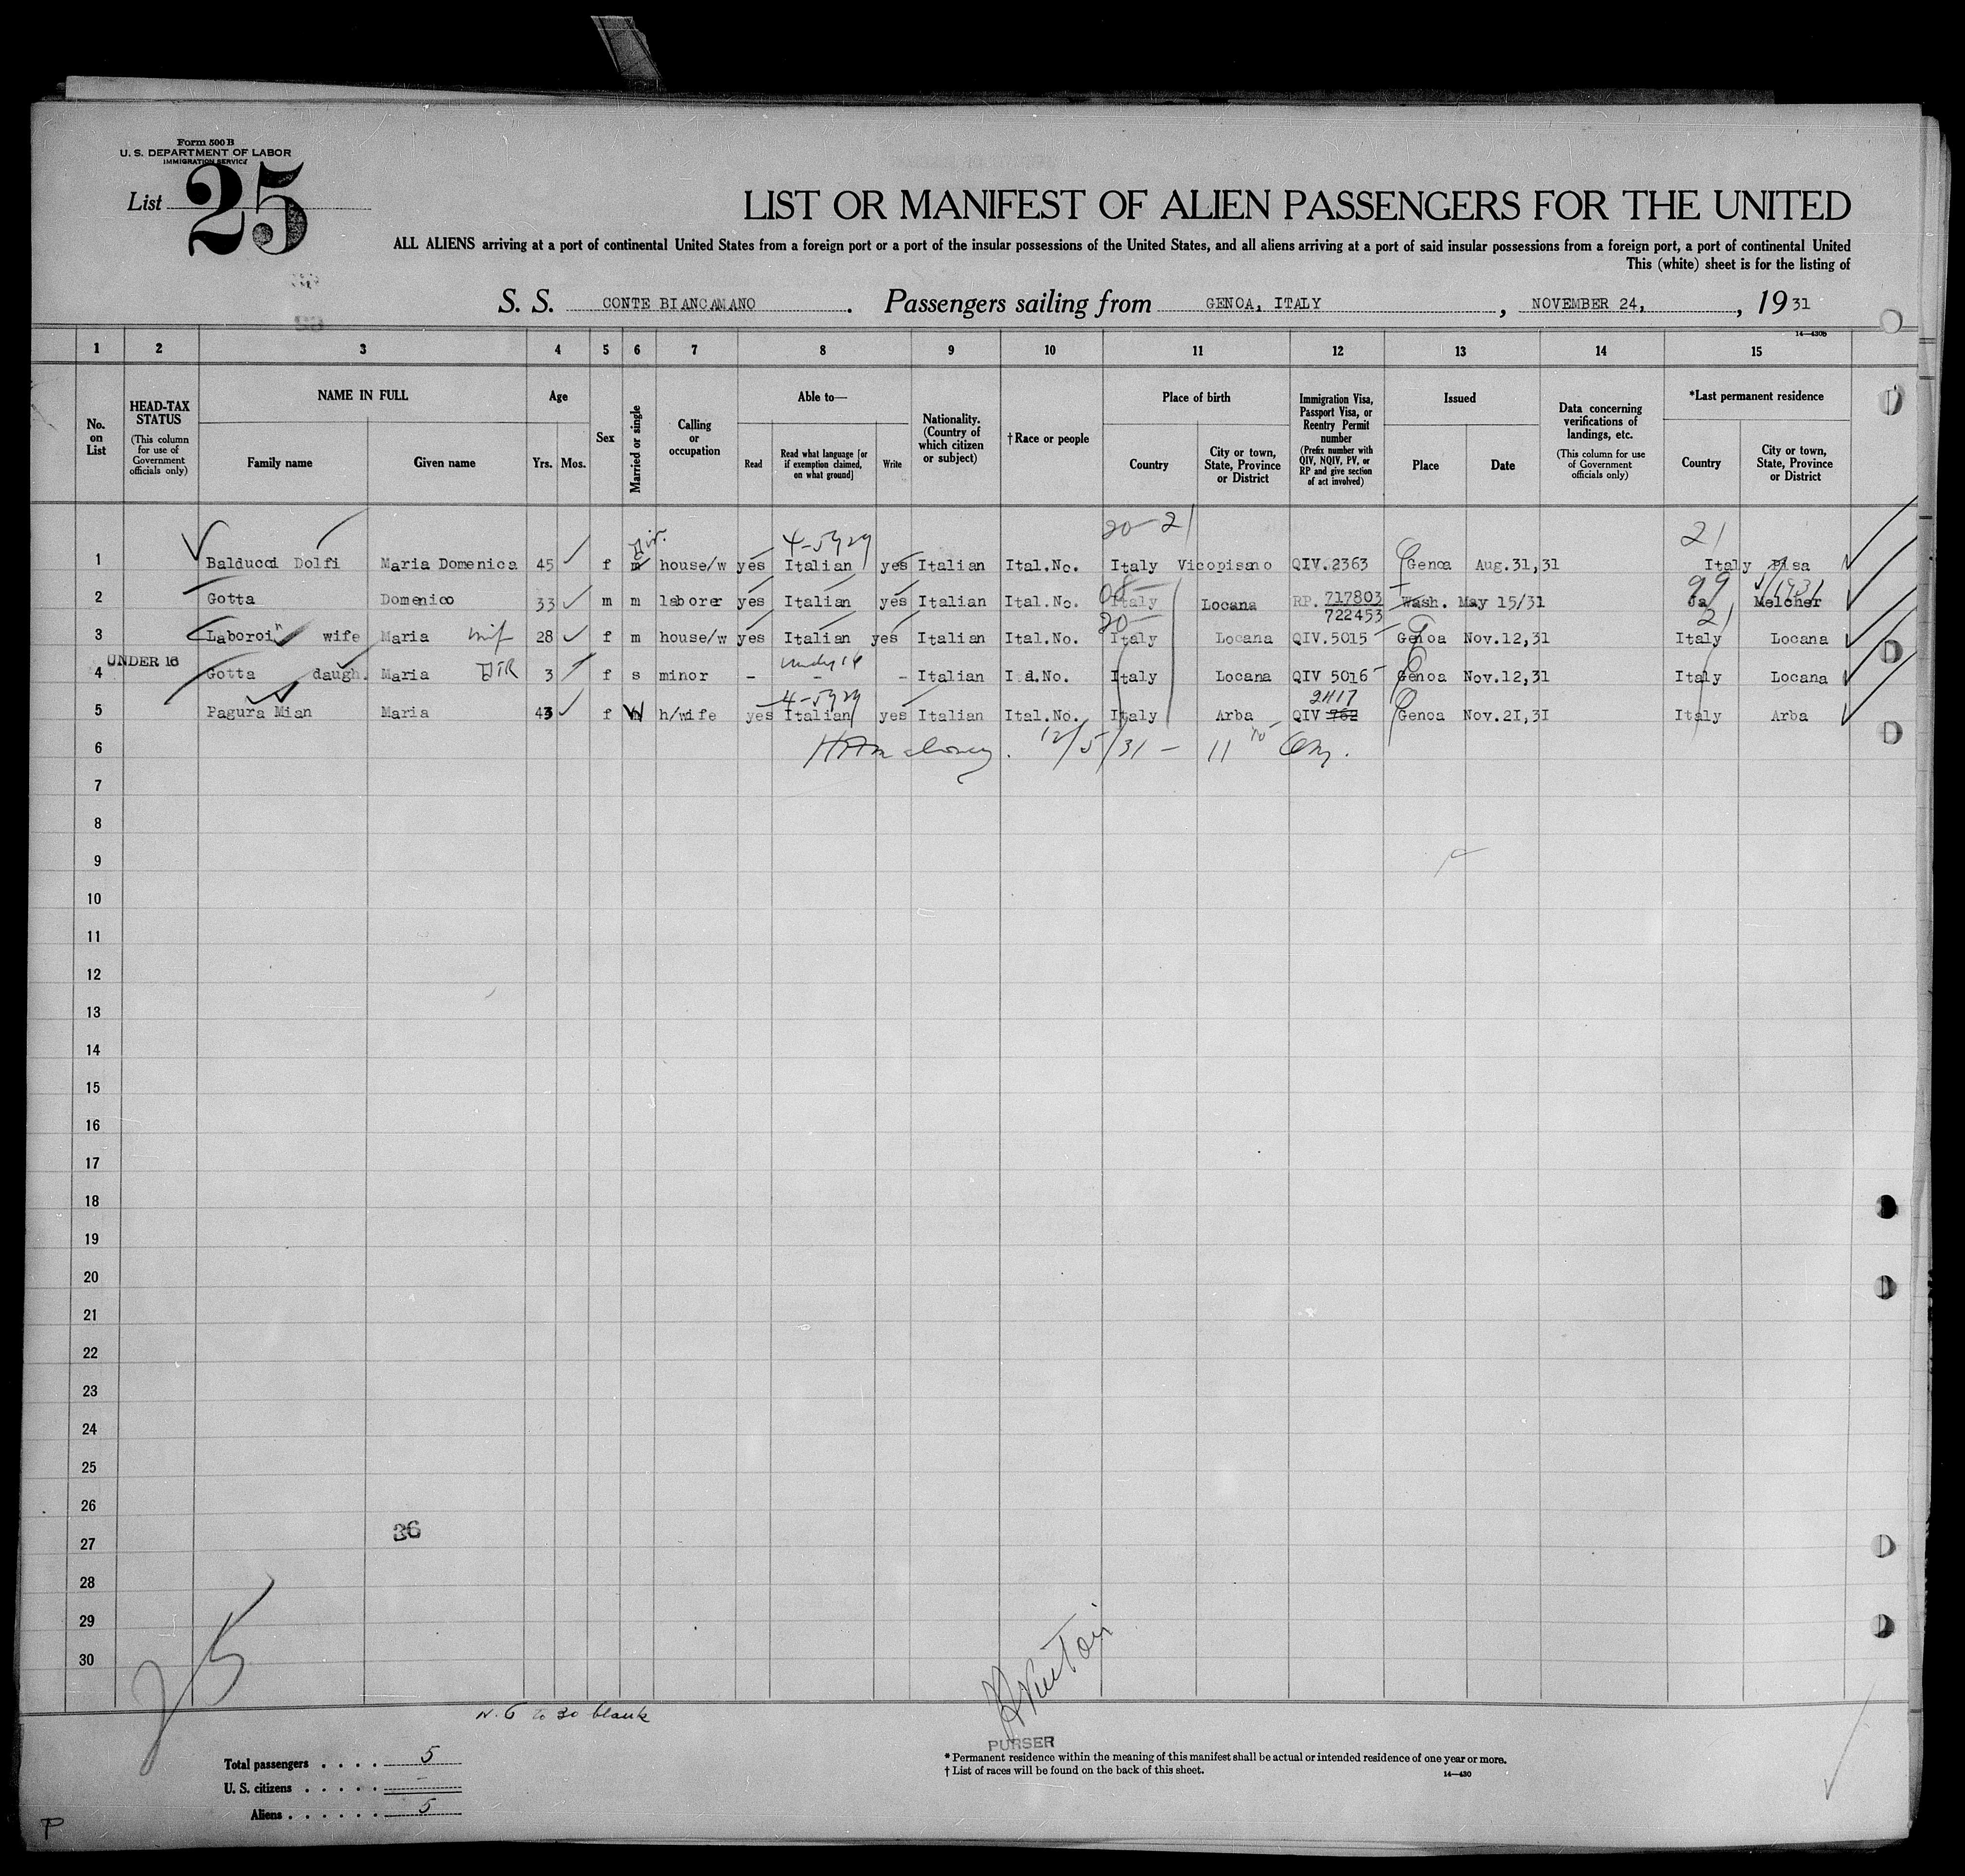 Form 500 B
U. S. DEPARTMENT OF LABOR
IMMIGRATION SERVICE
List 25
LIST OR MANIFEST OF ALIEN PASSENGERS FOR THE UNITED
ALL ALIENS arriving at a port of continental United States from a foreign port or a port of the insular possessions of the United States, and all aliens arriving at a port of said insular possessions from a foreign port, a port of continental United
This (white) sheet is for the listing of
S. S. CONTE BIANCAMANO. Passengers sailing from GENOA, ITALY, NOVEMBER 24, , 1931
14—430B
1 2 3 4 5 6 7 8 9 10 11 12 13 14 15
No. on List
HEAD-TAX STATUS
(This column for use of Government officials only)
NAME IN FULL
Family name
Given name
Age
Yrs.
Mos.
Sex
Married or single
Calling or occupation
Able to—
Read
Read what language [or if exemption claimed, on what ground]
Write
Nationality. (Country of which citizen or subject)
†Race or people
Place of birth
Country
City or town, State, Province or District
Immigration Visa, Passport Visa, or Reentry Permit number
(Prefix number with QIV, NQIV, PV, or RP and give section of act involved)
Issued
Place
Date
Data concerning verifications of landings, etc.
(This column for use of Government officials only)
*Last permanent residence
Country
City or town, State, Province or District
Div. 4-5929 20-21 21
1 Balducci Dolfi Maria Domenica 45 f m house/w yes Italian yes Italian Ital.No. Italy Vicopisano QIV.2363 Genoa Aug.31,31 Italy Pisa
08- 99
2 Gotta Domenico 33 m m laborer yes Italian yes Italian Ital.No. Italy Locana RP. 717803 Wash. May 15/31 Ja Melcher
722453
20- 21
3 Laboroi n wife Maria wif 28 f m house/w yes Italian yes Italian Ital.No. Italy Locana QIV.5015 Genoa Nov.12,31 Italy Locana
UNDER 16 under 16
4 Gotta daugh. Maria DTR 3 f s minor - - - Italian Ital.No. Italy Locana QIV 5016 Genoa Nov.12,31 Italy Locana
4-5929 2417
5 Pagura Mian Maria 43 f W h/wife yes Italian yes Italian Ital.No. Italy Arba QIV 762 Genoa Nov.21,31 Italy Arba
6 12/5/31 - 11
7
8
9
10
11
12
13
14
15
16
17
18
19
20
21
22
23
24
25
26
36
27
28
29
30
25
N. 6 to 30 blank
PURSER
Total passengers . . . . 5
U. S. citizens . . . . . -
Aliens . . . . . . 5
* Permanent residence within the meaning of this manifest shall be actual or intended residence of one year or more.
† List of races will be found on the back of this sheet.
14—430
P